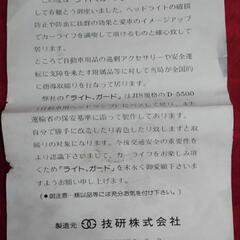 して有難とう御座いました。ヘッドライトの破損
防止や防虫に抜群の効果と愛車のイメージアップで
カーライフを満喫して頂けるものと確心致して
居ります。
ところで自動車用品の過剰アクセサリーや安全運
転に支障を来たす附属品等に対して当局が全国的
に指導取締りを行なって居ります。
弊社の『ライト、ガード』は　　規格の D-5500
運輸省の保安基準に添って製作しております。
自分で勝手に改造したり着色したり致しますと取
締りの対象になります。今後交通安全の重要さを
より認識下さいまして、カーライフをお楽しみ頂
くため『ライト、ガード』を末永く御愛顧下さいま
すようお願い申し上げます。
(御注意・類似品等には充分お気を付け下さい。)
製造元 技研株式会社